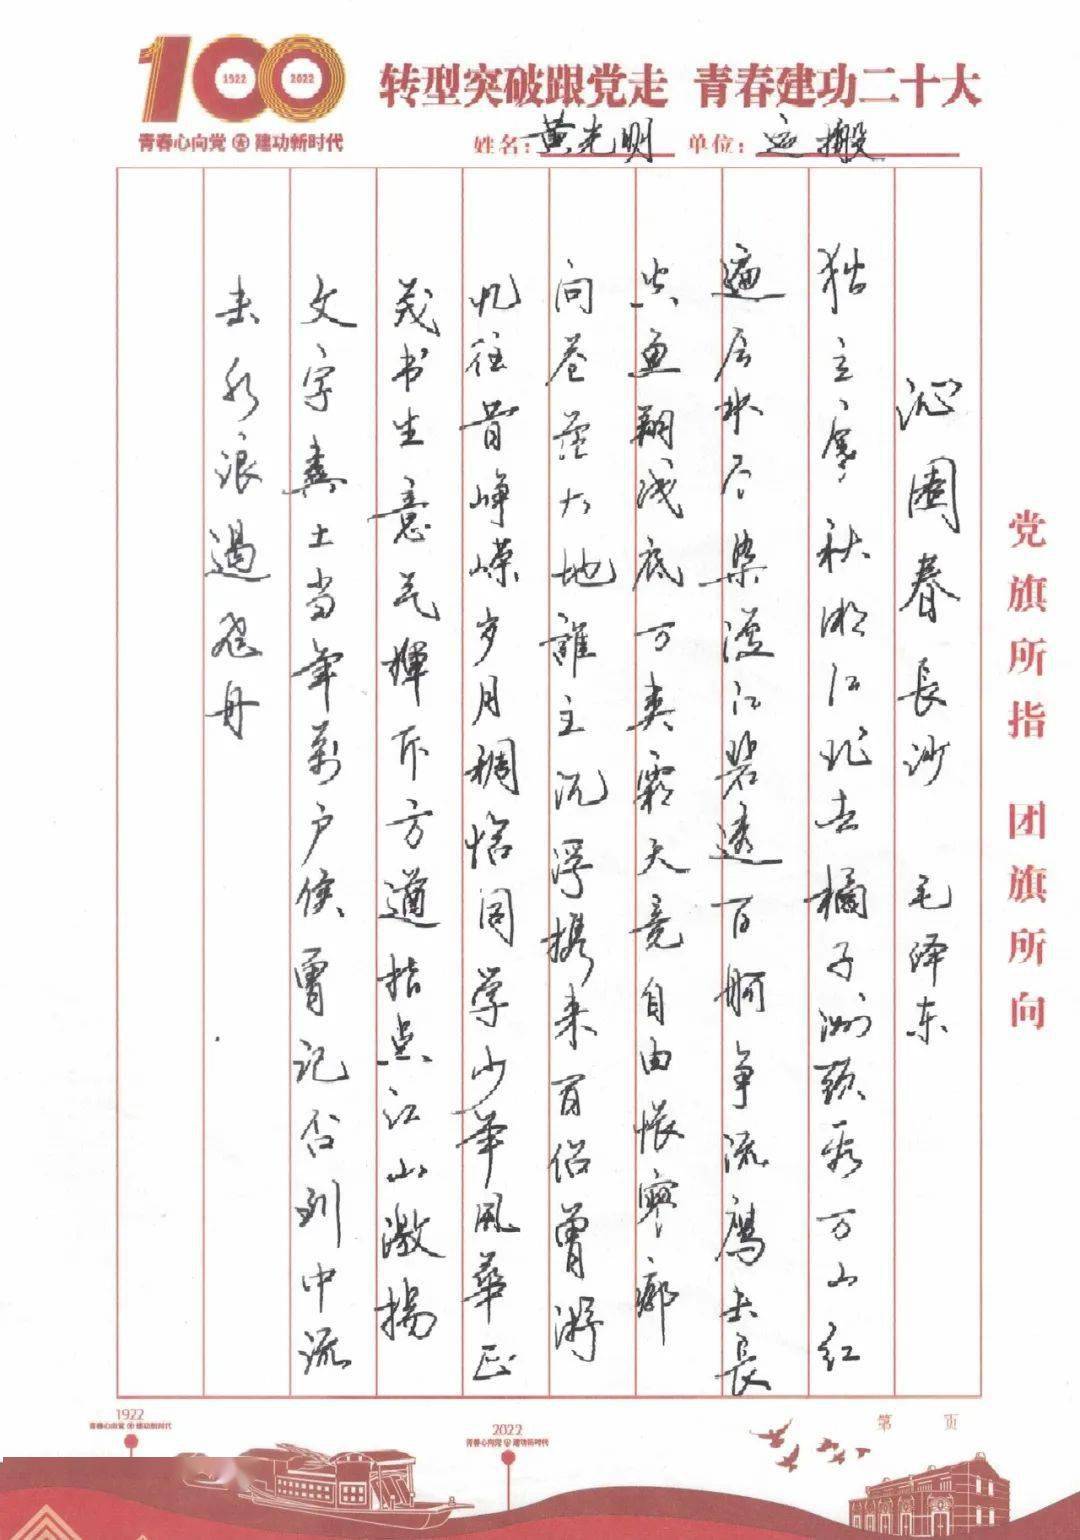 100
1922
2022
青春心向党 建功新时代
转型突破跟党走 青春建功二十大
姓名：黄光明 单位：运搬
沁園春 長沙 毛泽东
独立寒秋湘江北去橘子洲頭看万山红
遍层林尽染漫江碧透百舸争流鹰击長
空鱼翔浅底万类霜天竞自由怅寥廓
问苍茫大地誰主沉浮携来百侣曾游
忆往昔峥嵘岁月稠恰同学少年風華正
茂书生意气揮斥方遒指点江山激揚
文字粪土当年萬户侯曾记否到中流
击水浪遏飞舟
党旗所指 团旗所向
第 页
1922
青春心向党 建功新时代
2022
青春心向党 建功新时代